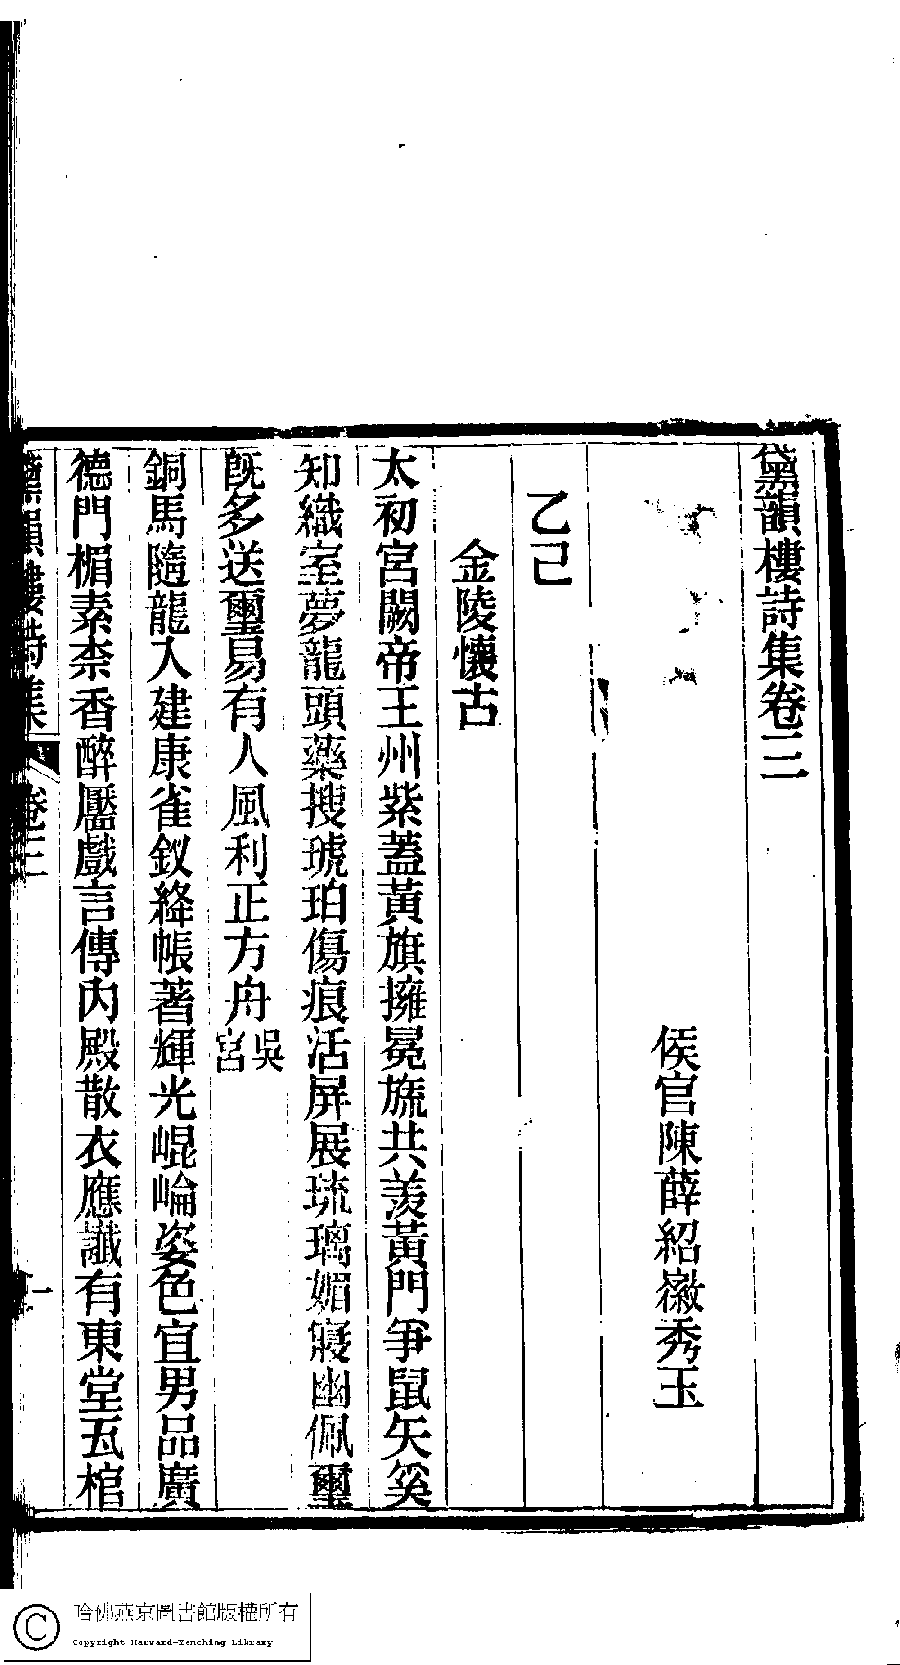 黛韻樓詩集卷三
侯官陳薛紹徽秀玉
乙巳
金陵懷古
太初宮闕帝王州紫蓋黃旗擁冕旒共羨黃門爭鼠矢奚
知織室夢龍頭藥搜琥珀傷痕活屏展琉璃媚寢幽佩璽
旣多送璽易有人風利正方舟吳宮
銅馬隨龍入建康雀釵絳帳著輝光崐崘姿色宜男品廣
德門楣素柰香醉靨戲言傳內殿散衣應讖有東堂瓦棺
黛韻樓詩集 卷三 一
哈佛燕京圖書館版權所有
Copyright Harvard-Yenching Library